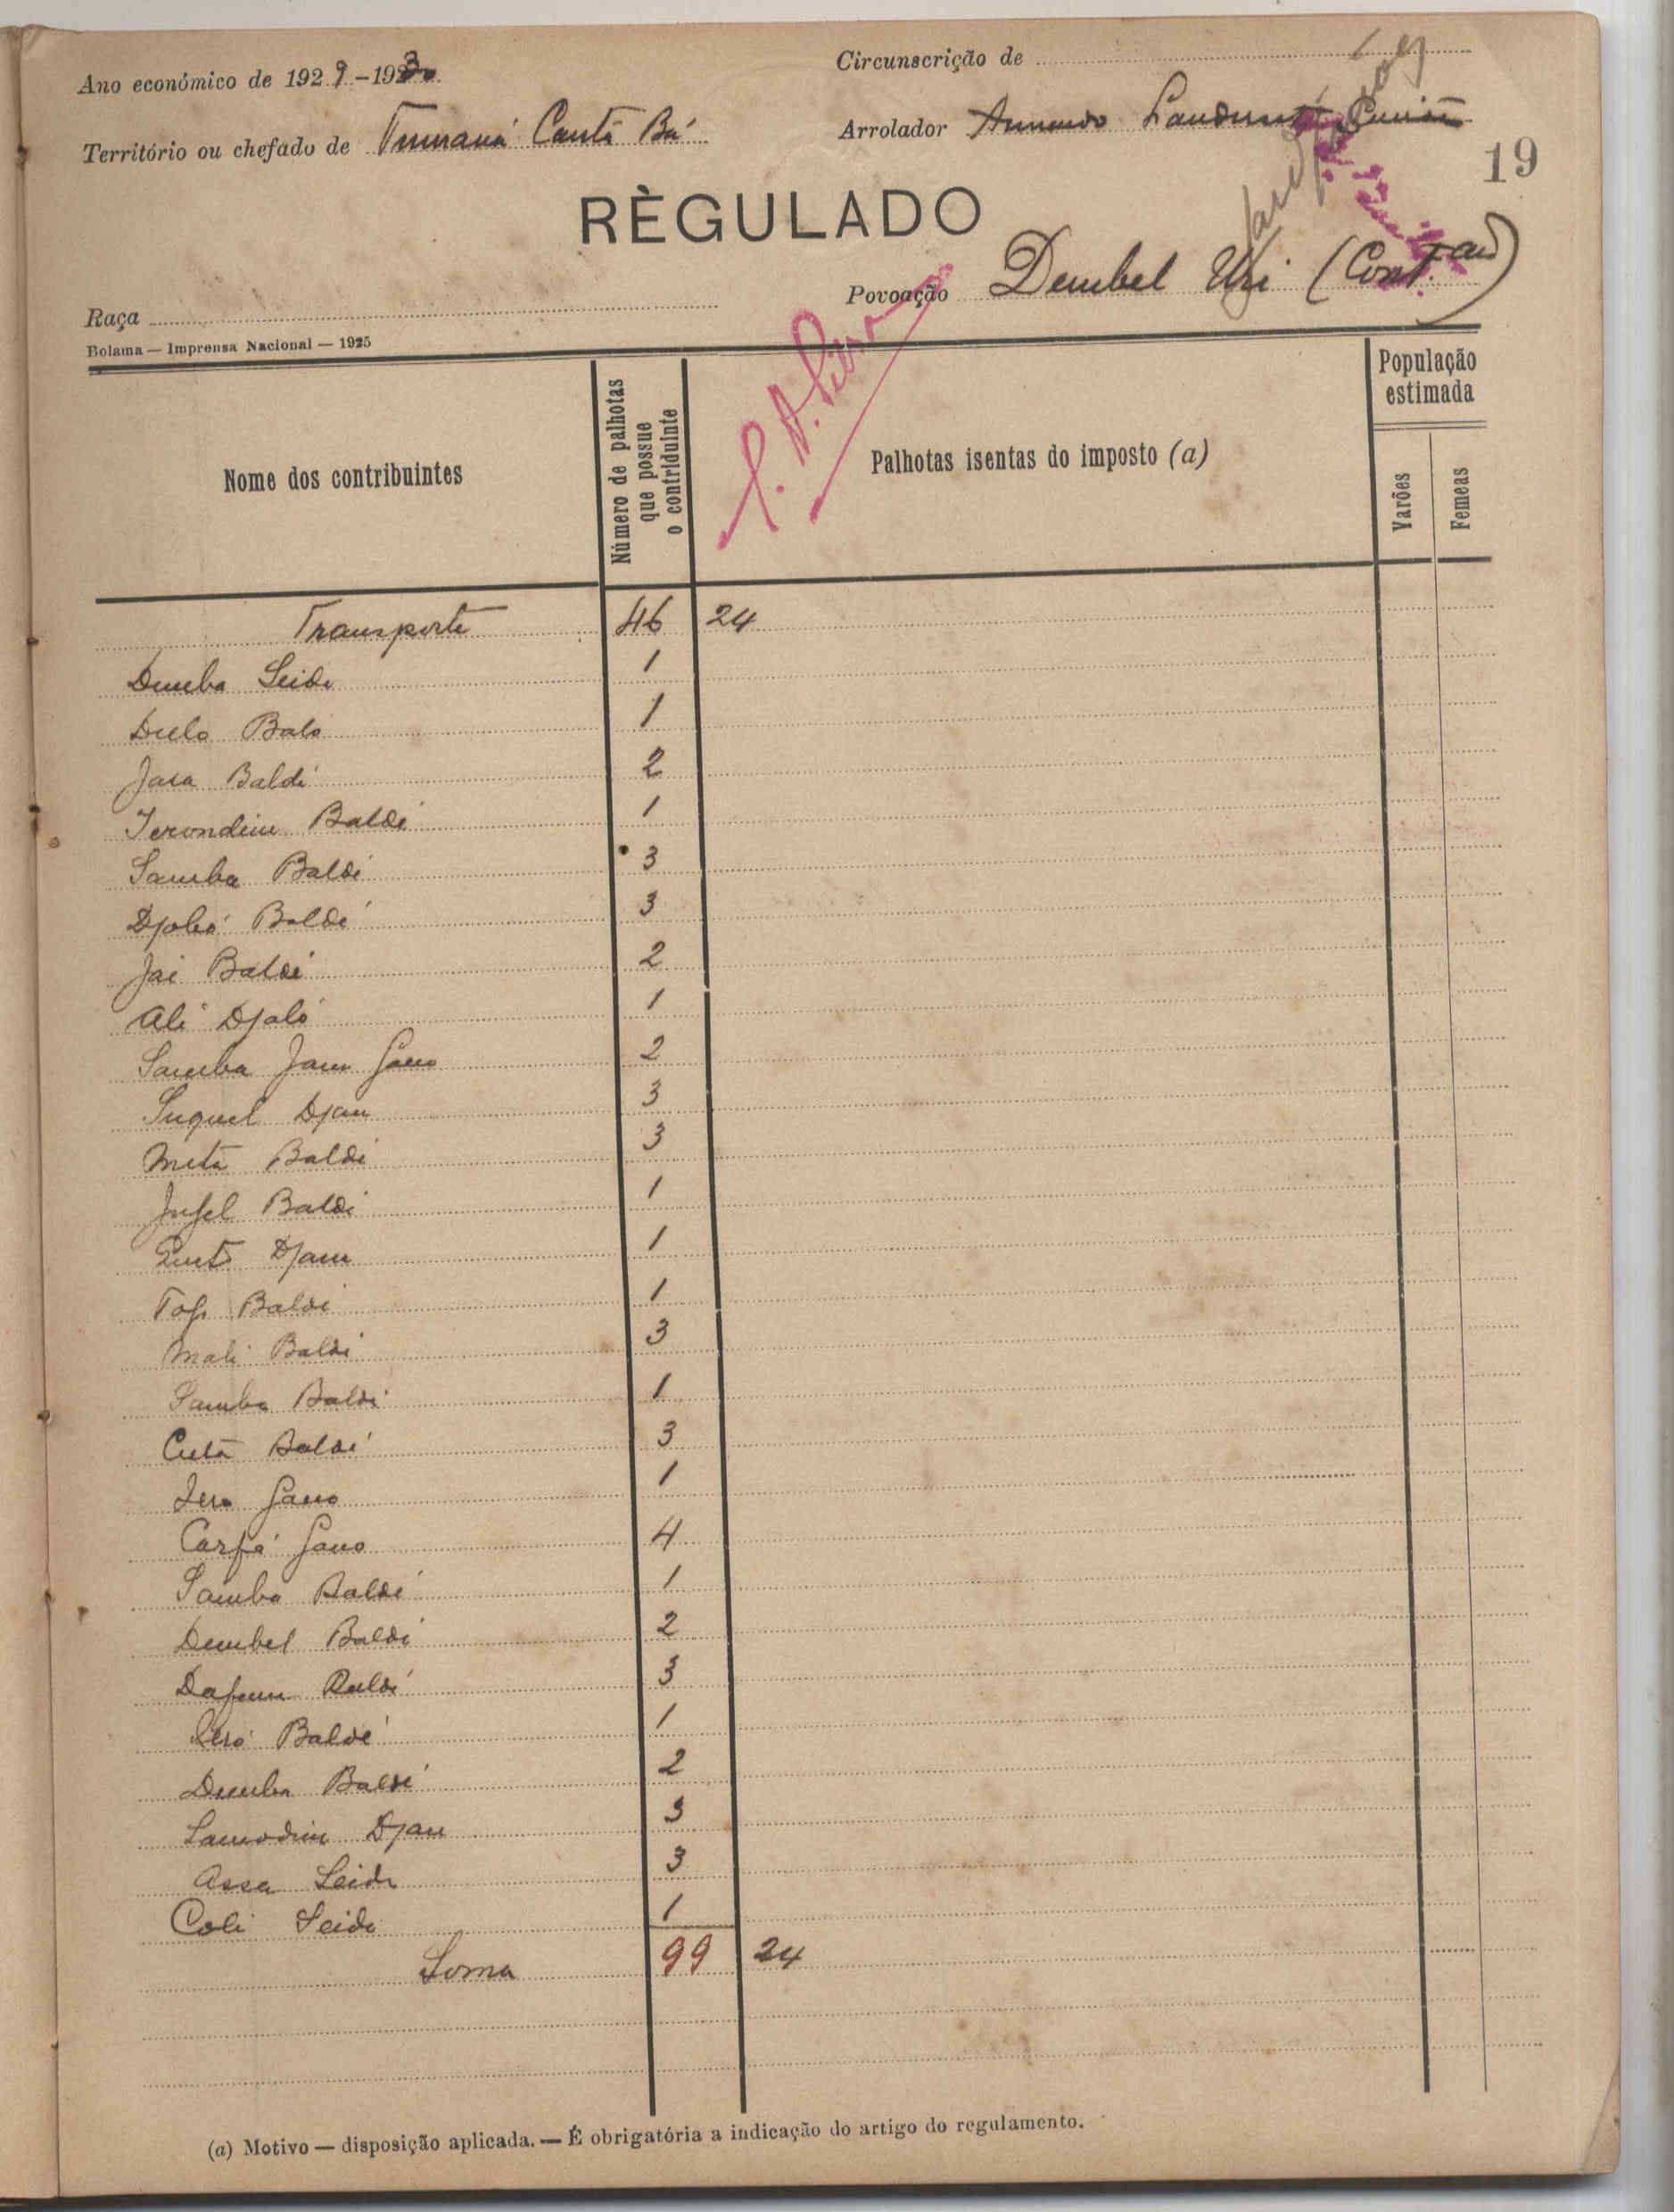 Ano económico de 1929-1930
Circunscrição de
Território ou chefado de Tumaná Cantá Bá
Arrolador Armando
19
RÈGULADO
Raça
Povoação Dembel Uri (Cont.ão)
Bolama — Imprensa Nacional — 1925
Nome dos contribuintes
Número de palhotas que possue o contriduinte
Palhotas isentas do imposto (a)
População estimada
Varões
Femeas
Transporte 46 24
Demba Seidi 1
Delo Baló 1
Jara Baldé 2
Jerondim Baldé 1
Samba Baldé 3
Djobó Baldé 3
Jai Baldé 2
Ali Djaló 1
Samba Jam Gano 2
Suquel Djau 3
Metá Baldé 3
Baldé 1
Djam 1
Baldé 1
Mali Baldé 3
Samba Baldé 1
Cutá Baldé 3
Iero Gano 1
Carfá Gano 4
Samba Baldé 1
Dembel Baldé 2
Baldé 3
Iero Baldé 1
Demba Baldé 2
Samodim Djau 3
Assa Seidi 3
Coli Seidi 1
Soma 99 24
(a) Motivo — disposição aplicada. — É obrigatória a indicação do artigo do regulamento.